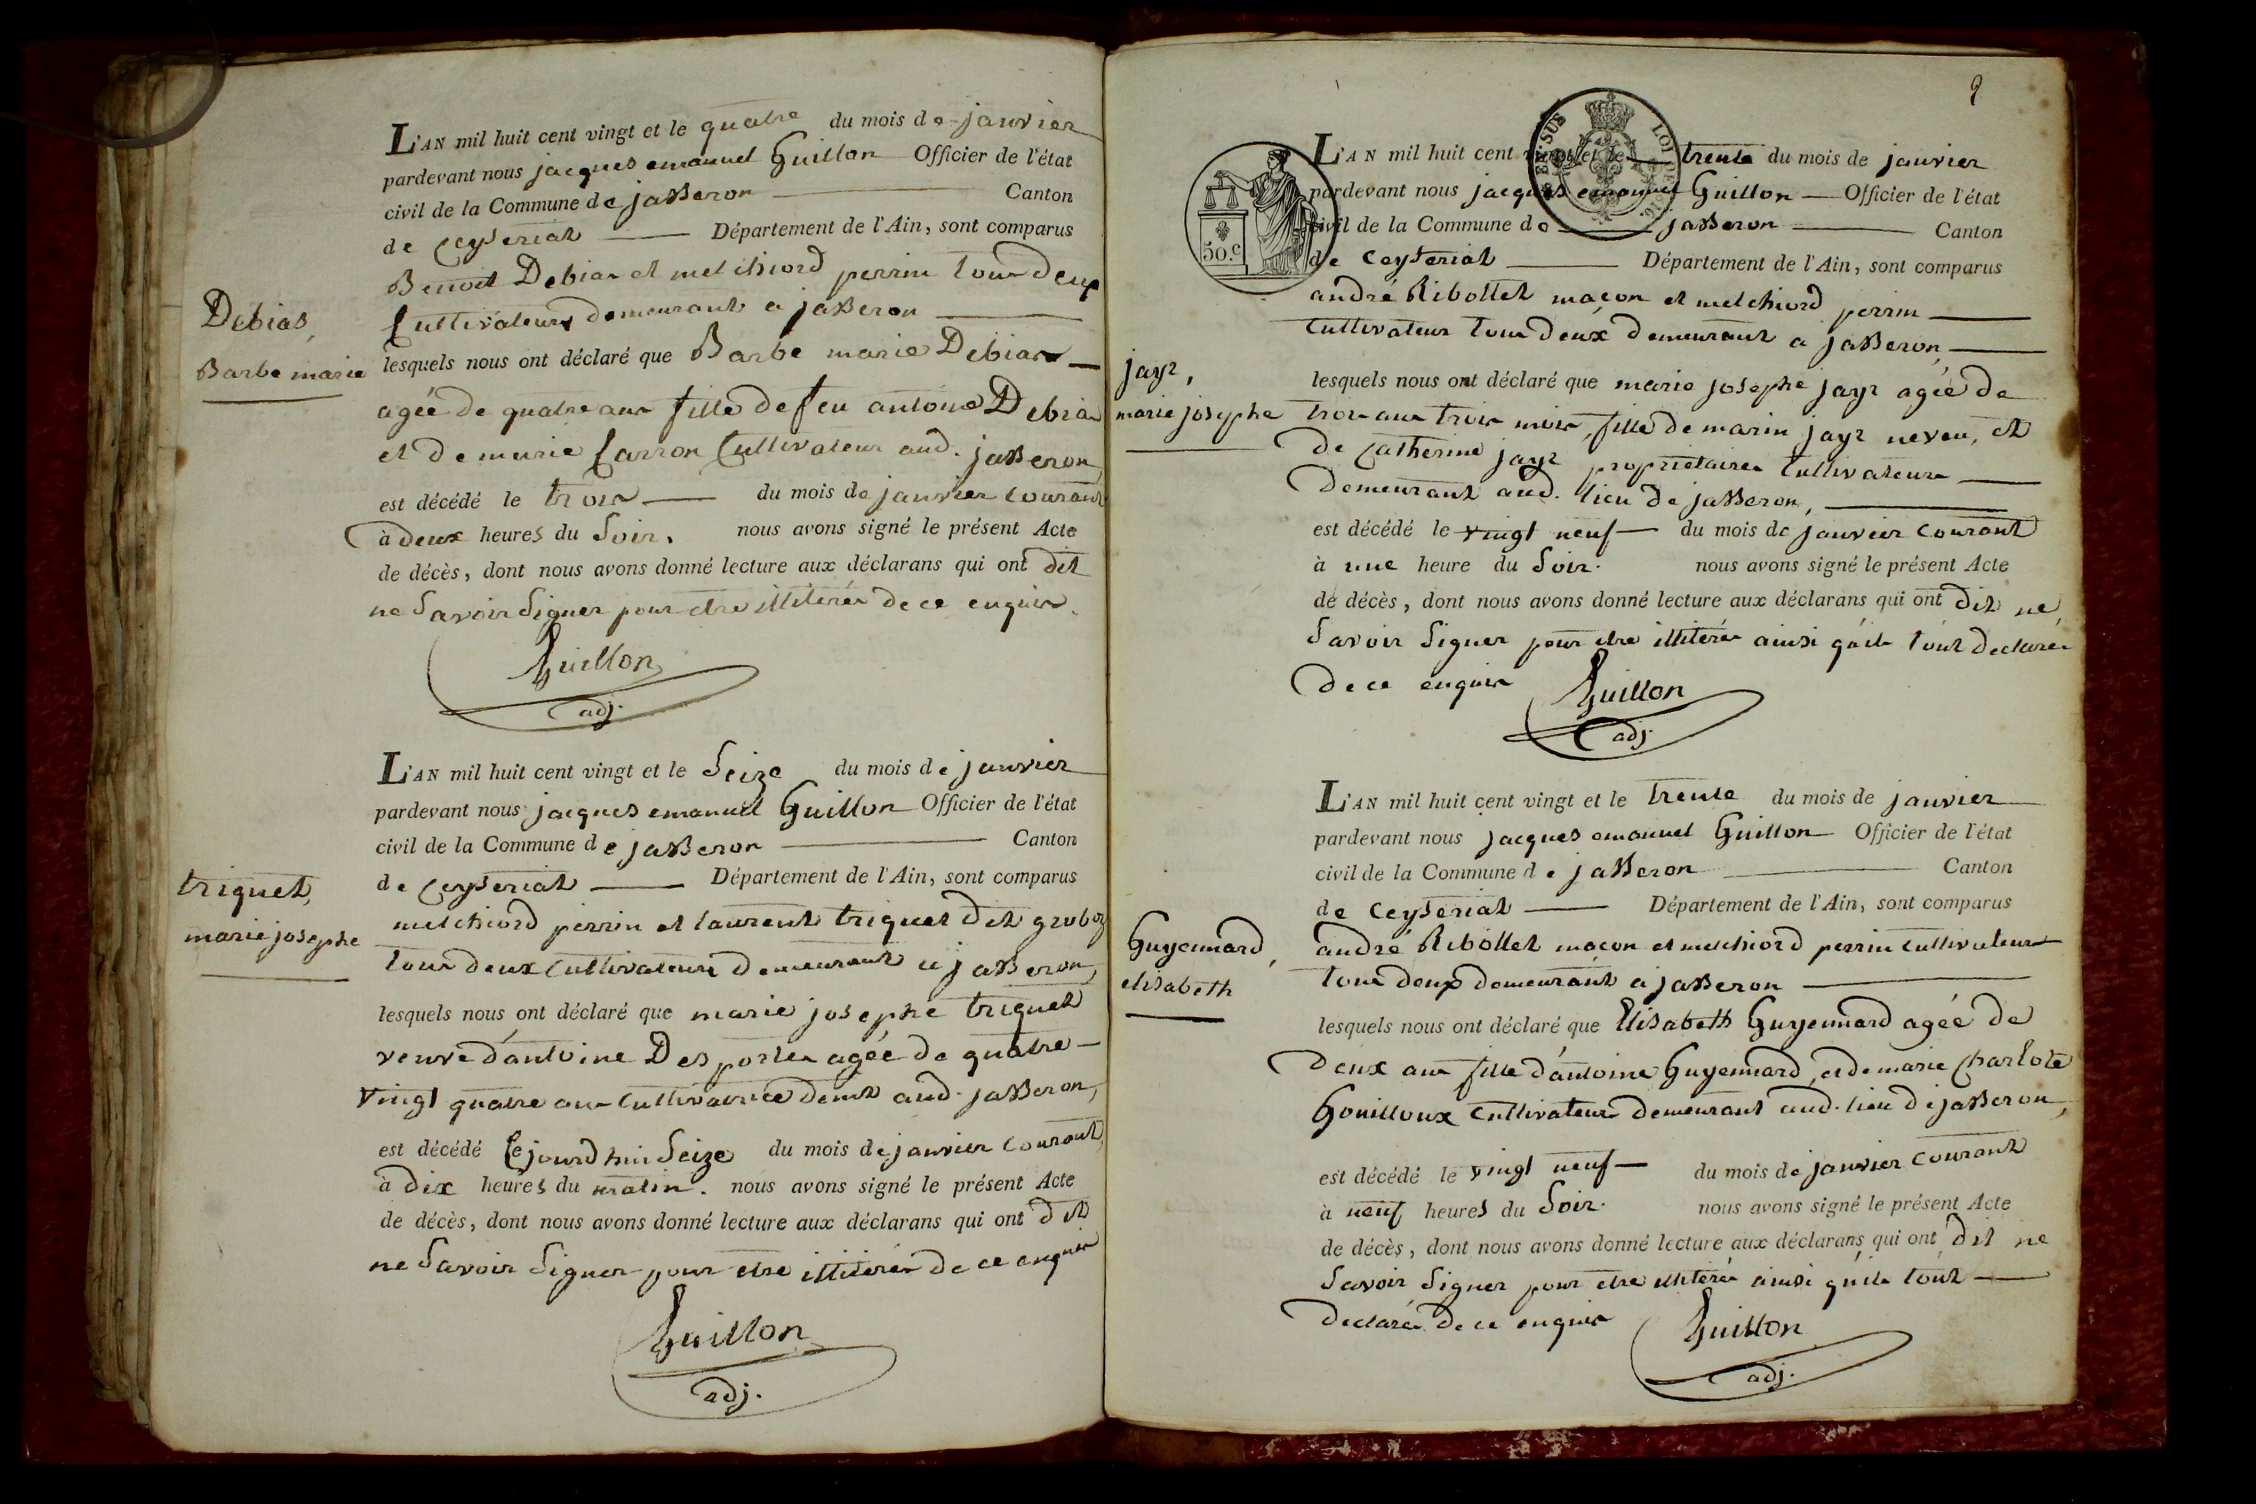 Debias,
Barbe marie
L'AN mil huit cent vingt et le quatre du mois de janvier
pardevant nous jacques emanuel Guillon Officier de l'état
civil de la Commune de jasseron Canton
de Ceyseriat Département de l'Ain, sont comparus
Benoit Debias et melchiord perrin tous deux
Cultivateurs demeurant a jasseron
lesquels nous ont déclaré que Barbe marie Debias
agée de quatre ans fille de feu antoine Debias
et de marie Carron Cultivateur aud. jasseron,
est décédé le trois du mois de janvier courant
à deux heures du Soir. nous avons signé le présent Acte
de décès, dont nous avons donné lecture aux déclarans qui ont dit
ne Savoir Signer pour etre illiterés de ce enquis.
Guillon
adj.
triquet,
marie josephe
L'AN mil huit cent vingt et le Seize du mois de janvier
pardevant nous jacques emanuel Guillon Officier de l'état
civil de la Commune de jasseron Canton
de Ceyseriat Département de l'Ain, sont comparus
melchiord perrin et laurent triquet dit groboz
tous deux Cultivateurs demeurant a jasseron,
lesquels nous ont déclaré que marie josephe triquet
veuve d'antoine Desportes agée de quatre
vingt quatre ans Cultivatrice demt aud. jasseron,
est décédé Cejourdhui Seize du mois de janvier courant,
à dix heures du matin. nous avons signé le présent Acte
de décès, dont nous avons donné lecture aux déclarans qui ont dit
ne Savoir Signer pour etre illiterés de ce enquis
Guillon
adj.
9
50.c
EN SUS
LOI DE 1816.
jayr,
marie josephe
L'AN mil huit cent vingt et le trente du mois de janvier
pardevant nous jacques emanuel Guillon Officier de l'état
civil de la Commune de jasseron Canton
de Ceyseriat Département de l'Ain, sont comparus
andré Ribollet maçon et melchiord perrin
Cultivateur tous deux demeurant a jasseron,
lesquels nous ont déclaré que marie josephe jayr agée de
trois ans trois mois, fille de marin jayr neveu, et
de Catherine jayr propriétaires Cultivateurs
demeurant aud. lieu de jasseron,
est décédé le vingt neuf du mois de janvier courant
à une heure du Soir. nous avons signé le présent Acte
de décès, dont nous avons donné lecture aux déclarans qui ont dit ne
Savoir Signer pour etre illiterés ainsi qu'ils l'ont declaré
de ce enquis
Guillon
adj.
Guyennard,
elisabeth
L'AN mil huit cent vingt et le trente du mois de janvier
pardevant nous jacques emanuel Guillon Officier de l'état
civil de la Commune de jasseron Canton
de Ceyseriat Département de l'Ain, sont comparus
andré Ribollet maçon et melchiord perrin Cultivateur
tous deux demeurant a jasseron
lesquels nous ont déclaré que Elisabeth Guyennard agée de
deux ans fille d'antoine Guyennard, et de marie Charlote
Gouilloux Cultivateurs demeurant aud. lieu de jasseron,
est décédé le vingt neuf du mois de janvier courant
à neuf heures du Soir. nous avons signé le présent Acte
de décès, dont nous avons donné lecture aux déclarans qui ont dit ne
Savoir Signer pour etre illiterés ainsi qu'ils l'ont
declaré de ce enquis
Guillon
adj.